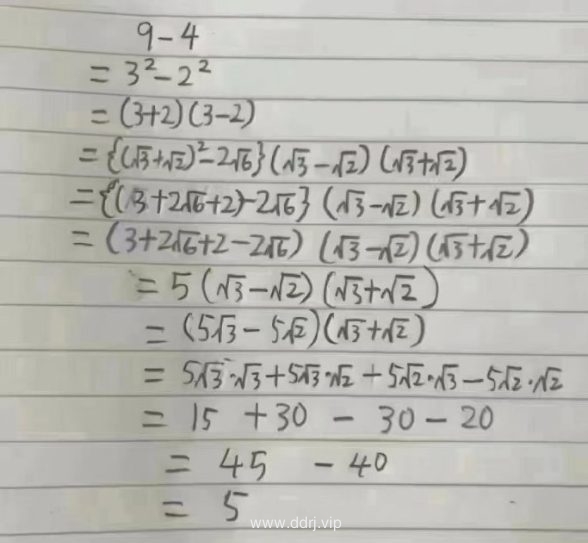 9-4
= 3²-2²
= (3+2)(3-2)
= {(√3+√2)²-2√6}(√3-√2)(√3+√2)
= {(3+2√6+2)-2√6}(√3-√2)(√3+√2)
= (3+2√6+2-2√6)(√3-√2)(√3+√2)
= 5(√3-√2)(√3+√2)
= (5√3-5√2)(√3+√2)
= 5√3·√3+5√3·√2+5√2·√3-5√2·√2
= 15+30-30-20
= 45-40
= 5
www.ddrj.vip